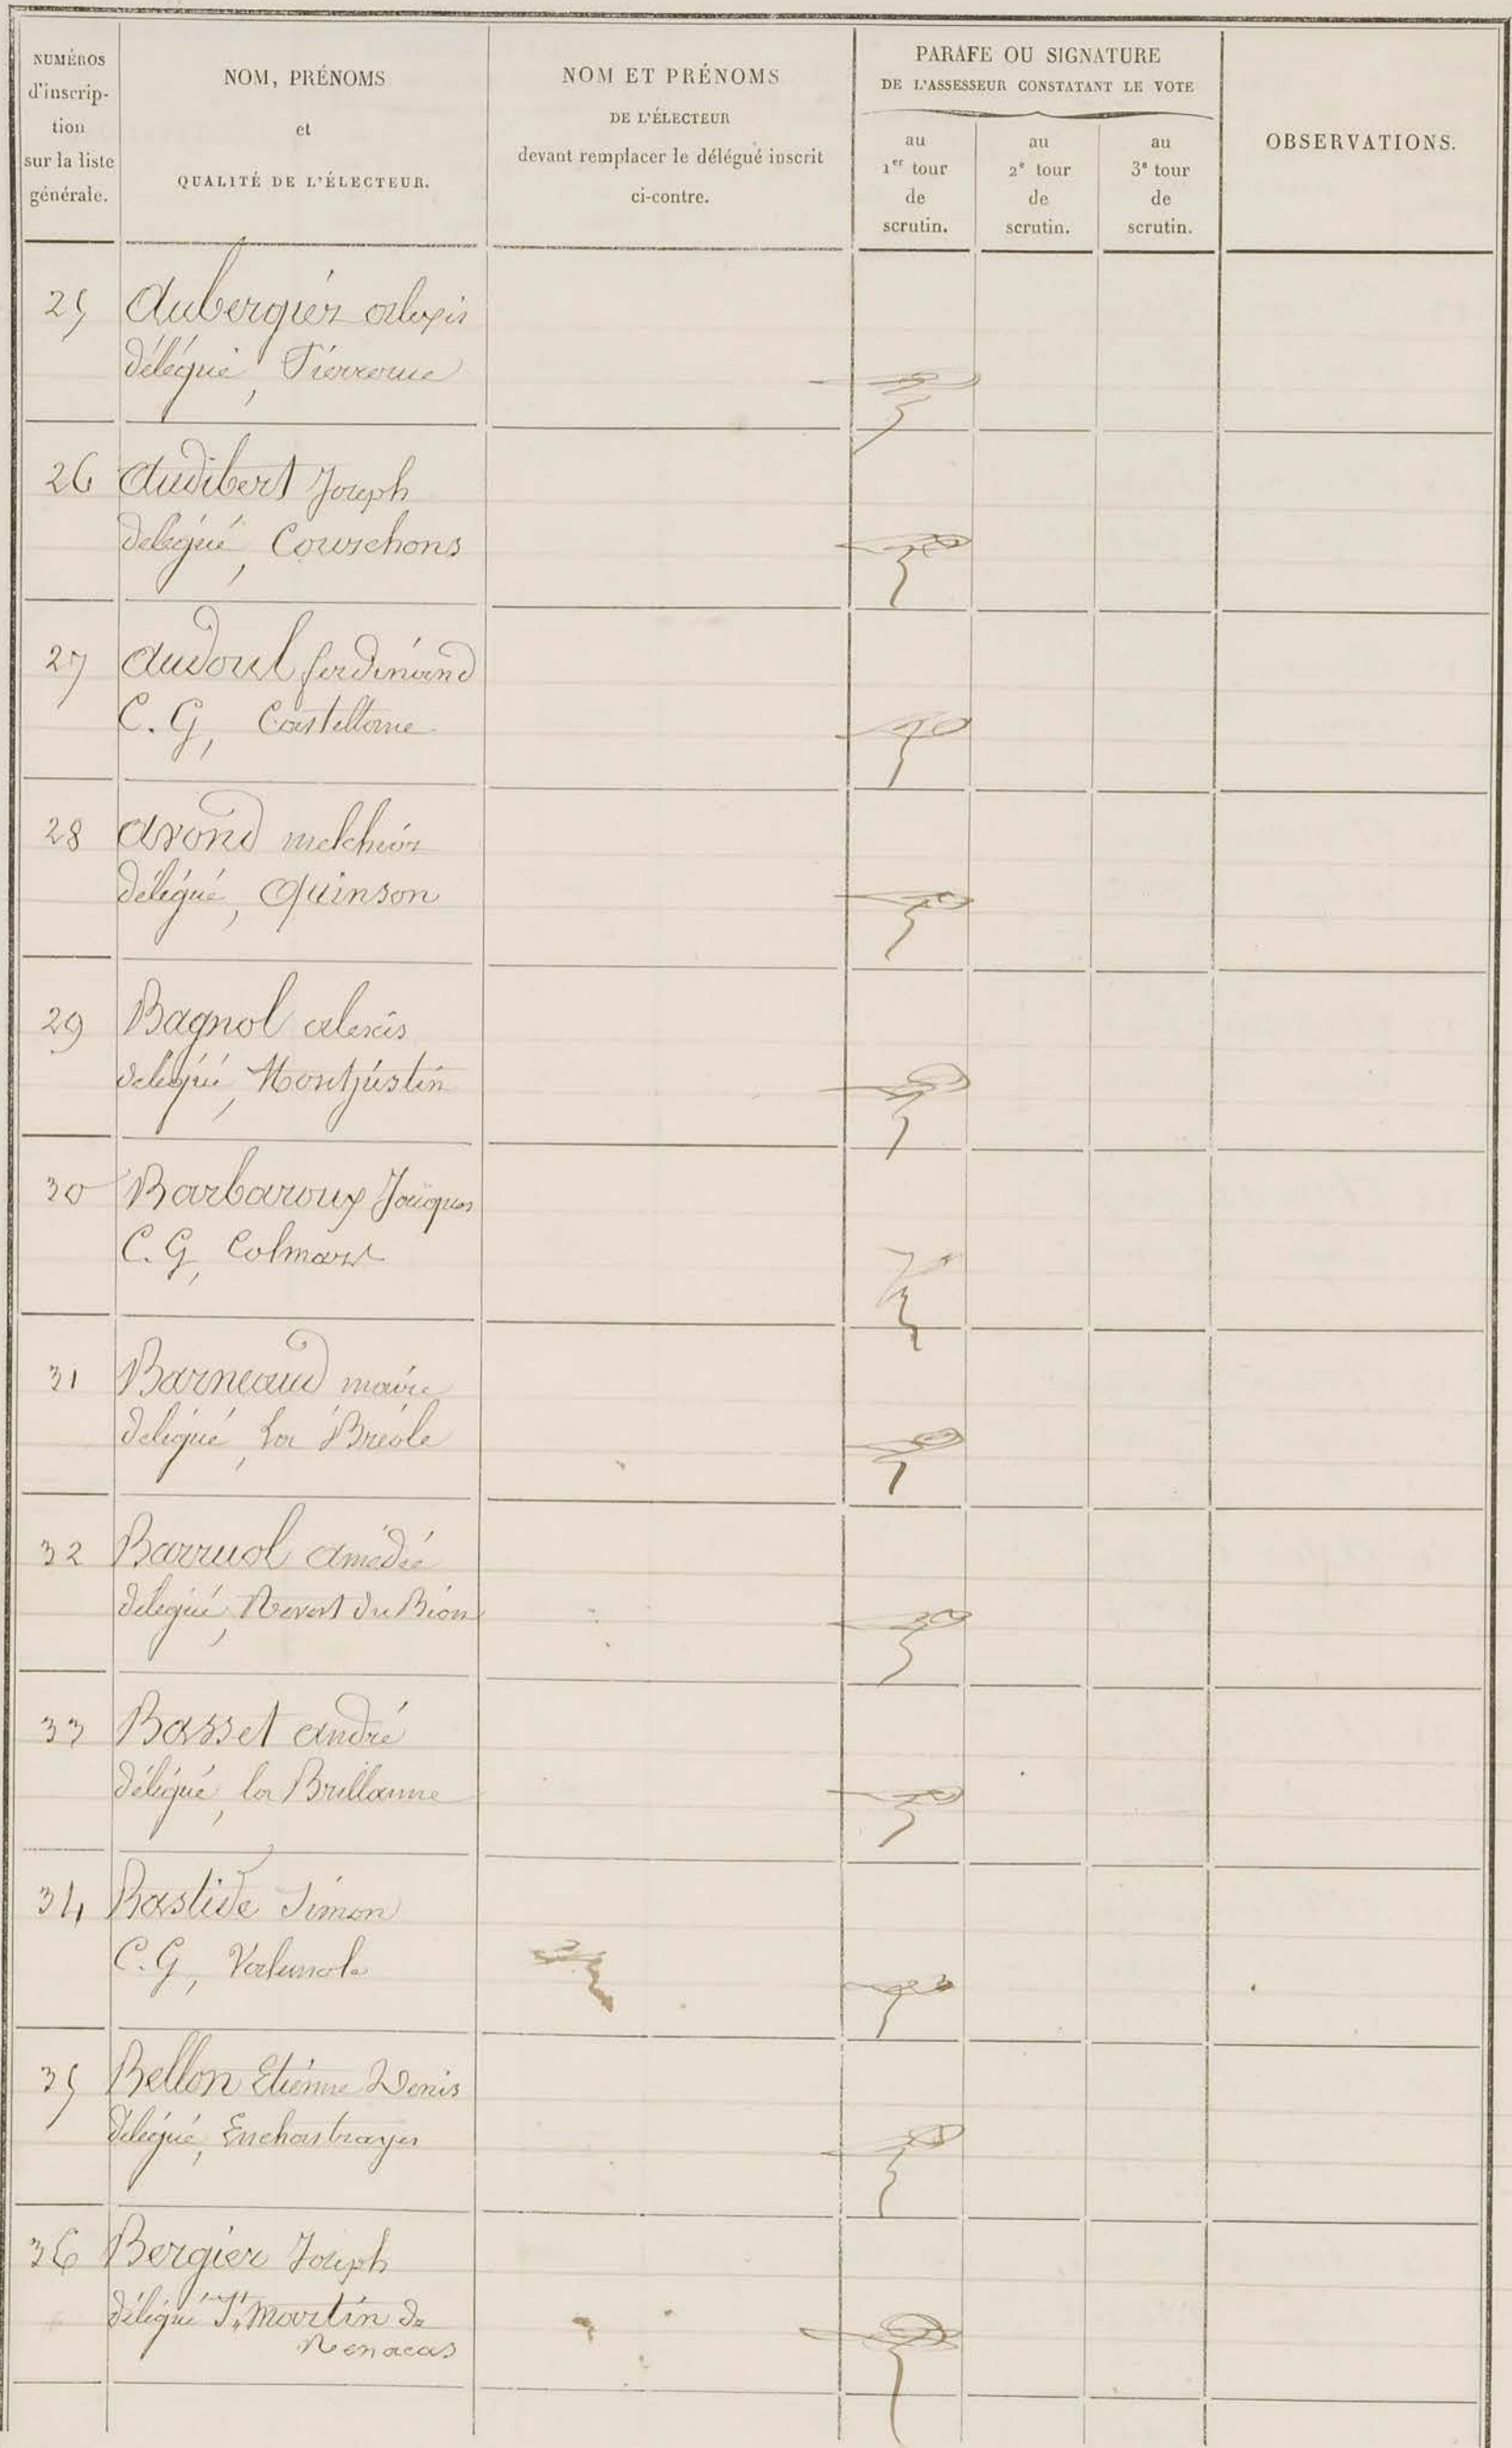 NUMÉROS
d'inscrip-
tion
sur la liste
générale.
NOM, PRÉNOMS
et
QUALITÉ DE L'ÉLECTEUR.
NOM ET PRÉNOMS
DE L'ÉLECTEUR
devant remplacer le délégué inscrit
ci-contre.
PARAFE OU SIGNATURE
DE L'ASSESSEUR CONSTATANT LE VOTE
au
1er tour
de
scrutin.
au
2e tour
de
scrutin.
au
3e tour
de
scrutin.
OBSERVATIONS.
25 Aubergier alexis
délégué, Pierrerue
26 Audibert Joseph
délégué, Courchons
27 Audoul ferdinand
C. G, Castellane
28 Avond melchior
délégué, Quinson
29 Bagnol alexis
délégué, Montjustin
30 Barbaroux Jacques
C. G, Colmars
31 Barneaud maire
délégué, La Bréole
32 Barruol amédée
délégué, Revest du Bion
33 Basset andré
délégué, la Brillanne
34 Bastide Simon
C. G, Valensole
35 Bellon Etienne Denis
délégué, Enchastrayes
36 Bergier Joseph
délégué St. Martin de
Renacas